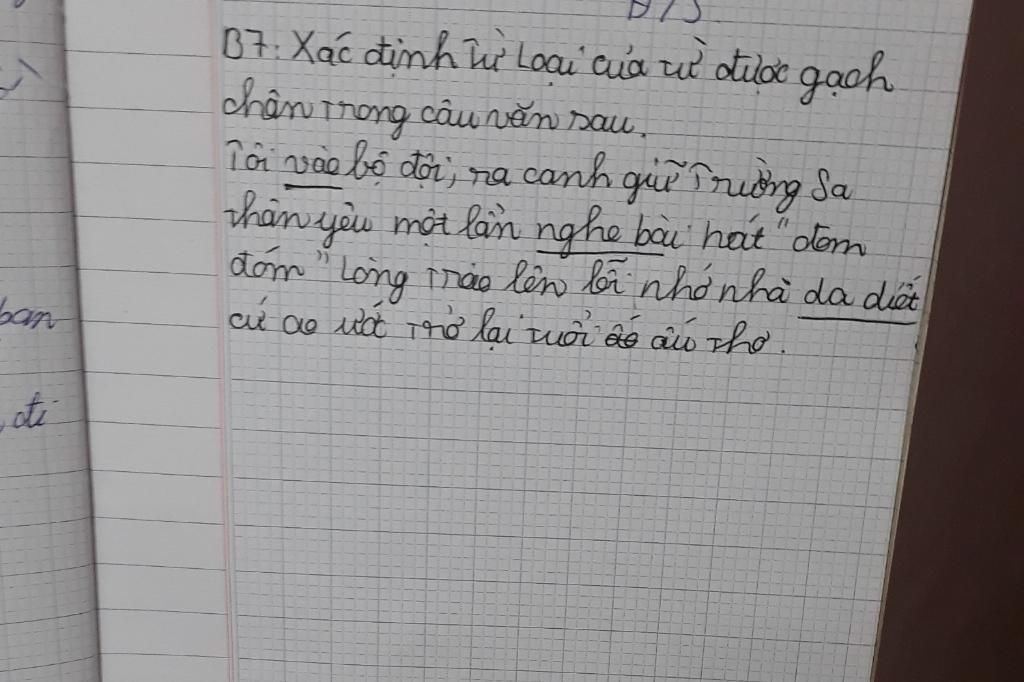 B7: Xác định từ loại của từ được gạch
chân trong câu văn sau.
Tôi vào bộ đội, ra canh giữ Trường Sa
thân yêu một lần nghe bài hát "đom
đóm" Lòng trào lên lỗi nhớ nhà da diết
cứ ao ước trở lại tuổi ấu thơ.
ban
, đi